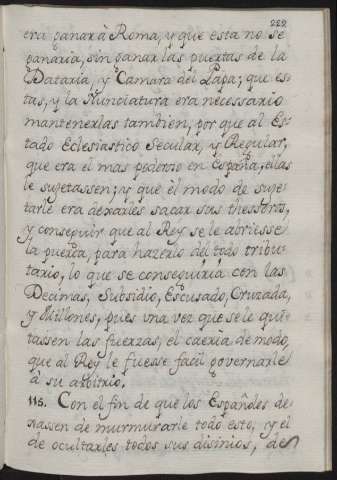 222
era ganar à Roma, y que esta no se
ganaria, sin ganar las puertas de la
Dataria, y Camara del Papa; que es-
tas, y la Nunciatura era necessario
mantenerlas tambien, por que al Es-
tado Eclesiastico Secular, y Regular,
que era el mas poderoso en España, ellas
le sujetassen; y que el modo de suje-
tarle era dexarles sacar sus thessoros,
y conseguir que al Rey se le abriesse
la puerta, para hazerlo del todo tribu-
tario, lo que se conseguiria con las
Decimas, Subsidio, Escusado, Cruzada,
y Millones, pues una vez que se le qui-
tassen las fuerzas, el caeria de modo,
que al Rey le fuesse facil governarle
à su arbitrio,
115. Con el fin de que los Españoles de-
xassen de murmurarle todo esto, y el
de ocultarles todos sus disinios, de